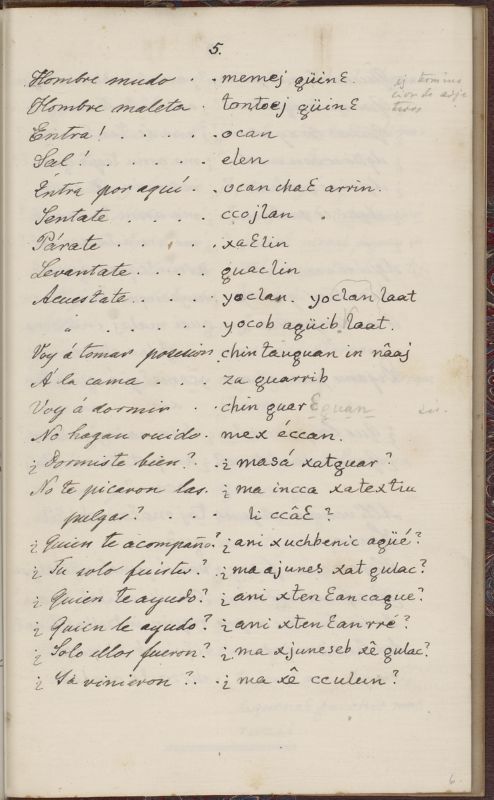 5.
Hombre mudo . . memej güinƐ.
Hombre maleta . tontocj güinƐ
Entra! . . . . . ocan
Sal! . . . . . elen
Entra por aquí . . ocan chaƐ arrin.
Sentate . . . . ccojlan
Párate . . . . xaƐlin
Levantate . . . . guaclin
Acuestate . . . . yoclan. yoclan laat
" . . . . yocob agüib laat.
Voy á tomar posesion . chin tauguan in nâaj
Á la cama . . . za guarrib
Voy á dormir . . chin guar Ɛguan
No hagan ruido . mex éccan.
¿Dormiste bien? . ¿masá xatguar?
No te picaron las . ¿ma incca xatextiu
pulgas? . . . li ccâƐ?
¿Quien te acompañó? ¿ani xuchbenic agüé?
¿Tu solo fuistes? ¿ma ajunes xat gulac?
¿Quien te ayudo? ¿ani xten Ɛancaque?
¿Quien le ayudo? ¿ani xten Ɛanrré?
¿Solo ellos fueron? ¿ma xjuneseb xê gulac?
¿Ya vinieron? . . ¿ma xê cculun?
ej termina
cion de adje
tivos
6.